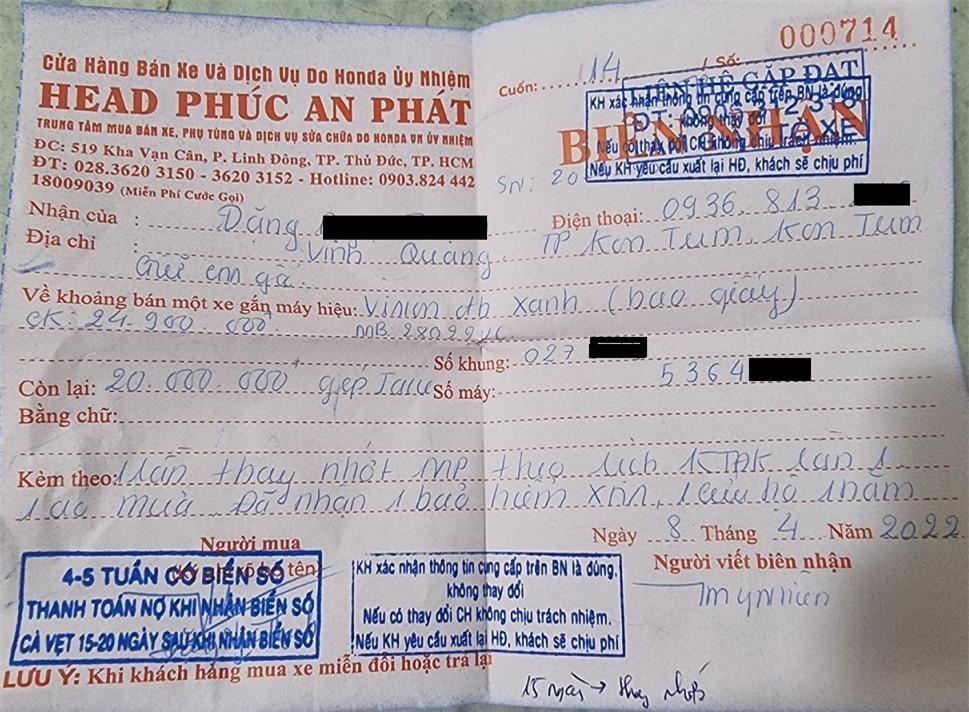 000714
Cửa Hàng Bán Xe Và Dịch Vụ Do Honda Ủy Nhiệm
HEAD PHÚC AN PHÁT
TRUNG TÂM MUA BÁN XE, PHỤ TÙNG VÀ DỊCH VỤ SỬA CHỮA DO HONDA VN ỦY NHIỆM
ĐC: 519 Kha Vạn Cân, P. Linh Đông, TP. Thủ Đức, TP. HCM
ĐT: 028.3620 3150 - 3620 3152 - Hotline: 0903.824 442
18009039 (Miễn Phí Cước Gọi)
Cuốn: 14 / Số:
LIÊN HỆ CẤP ĐẠT
BIÊN NHẬN
KH xác nhận thông tin cung cấp trên BN là đúng,
không thay đổi
Nếu có thay đổi CH không chịu trách nhiệm.
Nếu KH yêu cầu xuất lại HĐ, khách sẽ chịu phí
SN: 20
Nhận của : Đặng
Điện thoại: 0936 813
Địa chỉ : Vinh Quang, TP Kon Tum, Kon Tum
Gửi em gá
Về khoảng bán một xe gắn máy hiệu: Vision đb xanh (bao giấy)
CK: 24.900.000
Số khung: 027
Còn lại: 20.000.000
Số máy: 5364
Bằng chữ:
Kèm theo: 1 lần thay nhớt MP theo lịch KTĐK lần 1
1 áo mưa. Đã nhận 1 bảo hiểm xm,
Ngày 8 Tháng 4 Năm 2022
Người mua
Người viết biên nhận
4-5 TUẦN CÓ BIỂN SỐ
THANH TOÁN NỢ KHI NHẬN BIỂN SỐ
CÀ VẸT 15-20 NGÀY SAU KHI NHẬN BIỂN SỐ
KH xác nhận thông tin cung cấp trên BN là đúng,
không thay đổi
Nếu có thay đổi CH không chịu trách nhiệm.
Nếu KH yêu cầu xuất lại HĐ, khách sẽ chịu phí
LƯU Ý: Khi khách hàng mua xe miễn đổi hoặc trả lại
15 ngày → thay nhớt